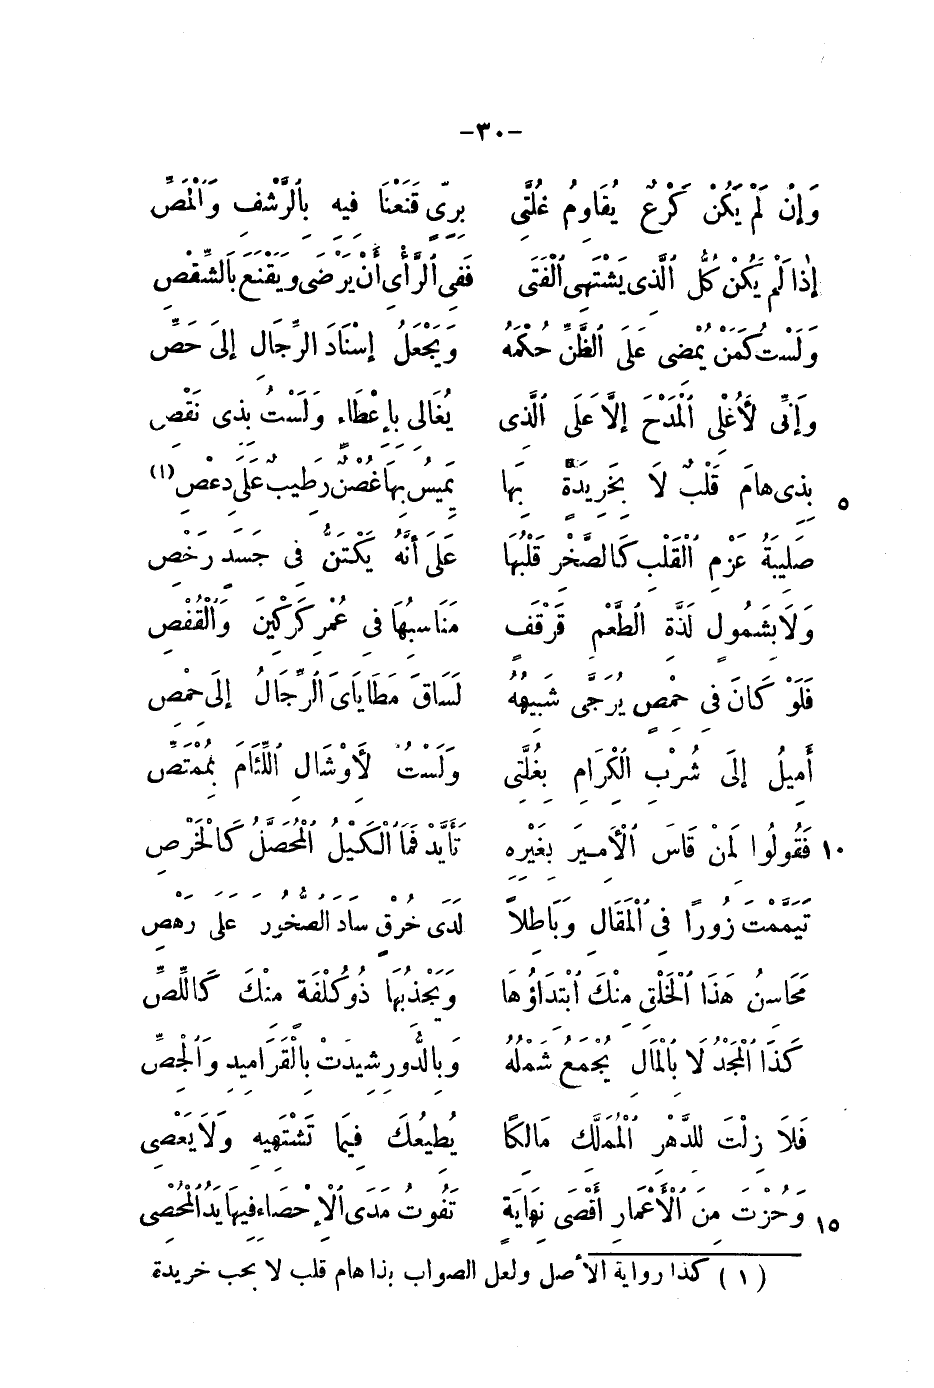 -٣٠-
وَإِنْ لَمْ يَكُنْ كَرْعٌ يُقَاوِمُ غُلَّتِى بِرِىٍّ قَنَعْنَا فِيهِ بِالرَّشْفِ وَالْمَصِّ
إِذَا لَمْ يَكُنْ كُلُّ الَّذِى يَشْتَهِى الْفَتَى فَفِى الرَّأْىِ أَنْ يَرْضَى وَيَقْنَعَ بِالشِّقْصِ
وَلَسْتُ كَمَنْ يُمْضِى عَلَى الظَّنِّ حُكْمَهُ وَيَجْعَلُ إِسْنَادَ الرِّجَالِ إِلَى حَصِّ
وَإِنِّى لَأُغْلِى الْمَدْحَ إِلَّا عَلَى الَّذِى يُغَالِى بِإِعْطَاءٍ وَلَسْتُ بِذِى نَقْصِ
بِذِى هَامَ قَلْبٌ لَا بِخَرِيدَةٍ بِهَا يَمِيسُ بِهَا غُصْنٌ رَطِيبٌ عَلَى دِعْصِ (١) ٥
صَلِيبَةُ عَزْمِ الْقَلْبِ كَالصَّخْرِ قَلْبُهَا عَلَى أَنَّهُ يَكْتَنُّ فِى جَسَدٍ رَخْصِ
وَلَا بِشَمُولٍ لَذَّةِ الطَّعْمِ قَرْقَفٍ مَنَاسِبُهَا فِى عُمْرِ كَرْكِينَ وَالْقُفْصِ
فَلَوْ كَانَ فِى حِمْصٍ يُرَجَّى شَبِيهُهُ لَسَاقَ مَطَايَاىَ الرِّجَالُ إِلَى حِمْصِ
أَمِيلُ إِلَى شُرْبِ الْكِرَامِ بِغُلَّتِى وَلَسْتُ لِأَوْشَالِ اللِّئَامِ بِمُمْتَصِّ
فَقُولُوا لِمَنْ قَاسَ الْأَمِيرَ بِغَيْرِهِ تَأَيَّدْ فَمَا الْكَيْلُ الْمُحَصَّلُ كَالْخَرْصِ ١٠
تَيَمَّمْتَ زُورًا فِى الْمَقَالِ وَبَاطِلًا لَدَى خُرُقٍ سَادَ الصُّخُورَ عَلَى رَهْصِ
مَحَاسِنُ هَذَا الْخَلْقِ مِنْكَ ابْتِدَاؤُهَا وَيَجْذِبُهَا ذُو كُلْفَةٍ مِنْكَ كَاللِّصِّ
كَذَا الْمَجْدُ لَا بِالْمَالِ يُجْمَعُ شَمْلُهُ وَبِالدُّورِ شِيدَتْ بِالْقَرَامِيدِ وَالْجِصِّ
فَلَا زِلْتَ لِلدَّهْرِ الْمُمَلَّكِ مَالِكًا يُطِيعُكَ فِيمَا تَشْتَهِيهِ وَلَا يَعْصِى
وَحُزْتَ مِنَ الْأَعْمَارِ أَقْصَى نِهَايَةٍ تَفُوتُ مَدَى الْإِحْصَاءِ فِيهَا يَدُ الْمُحْصِى ١٥
(١) كذا رواية الأصل ولعل الصواب بذا هام قلب لا بحب خريدة